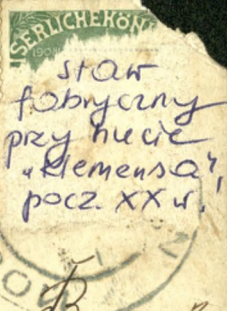 SERLICHEKÖN
1908
staw
fabryczny
przy hucie
"Klemensa",
pocz. XX w.